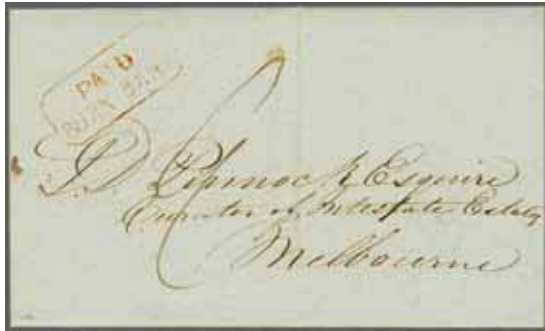 PAID
J. D. Pinnock Esquire
Curator of Intestate Estates
Melbourne